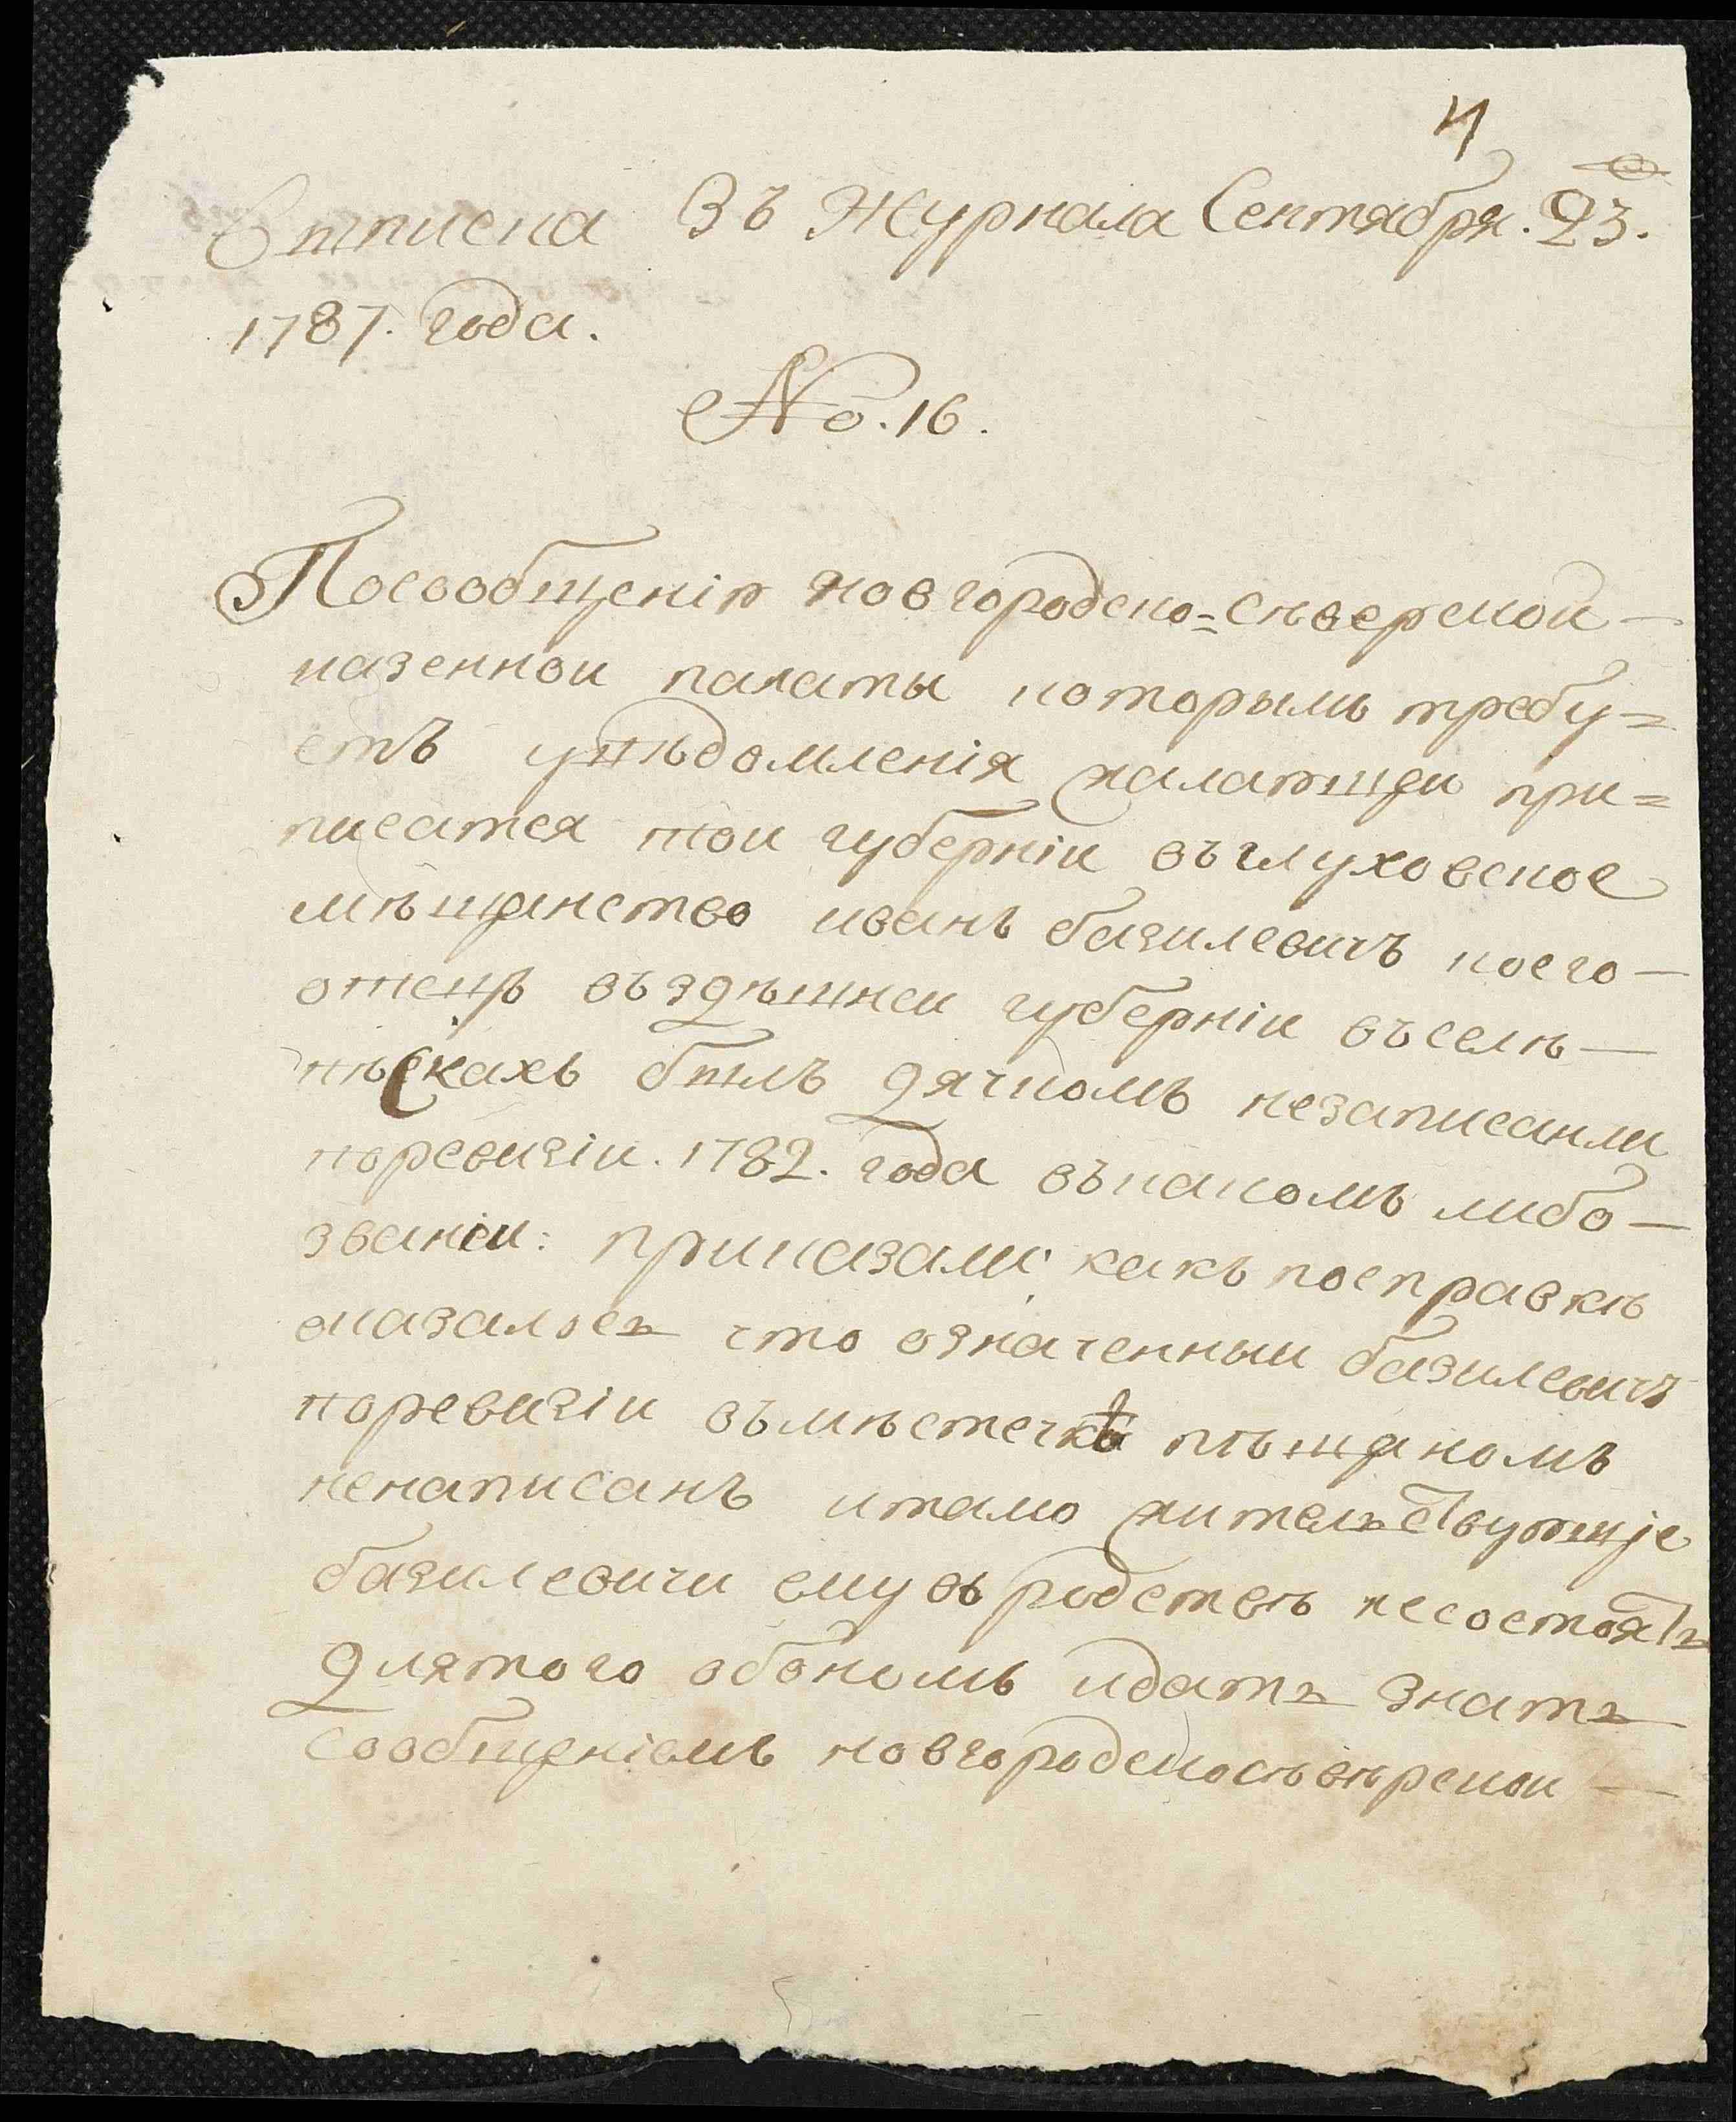 4
Отписка Въ Журнала Сентября. 23.
1787. года.
No. 16.
Посообщенію новгородско=северской —
казеннои палаты которымъ требу=
етъ увѣдомленія желающеи при=
писатся тои губерніи въглуховское
мѣщанство иванъ базилевичъ коего —
отецъ въздѣшнеи губерніи въселѣ —
пѣскахъ былъ дячкомъ незаписанли
поревизіи. 1782. года въкакомъ либо —
званіи: приказали какъ посправкѣ
оказалось что означенныи базилевичъ
поревизіи вмѣстечкѣ пѣщаномъ
ненаписанъ итамо жительствующіе
базилевичи ему въ родствѣ несостоятъ
длятого обономъ идать знать
сообщеніемъ новгородскосѣверскои —